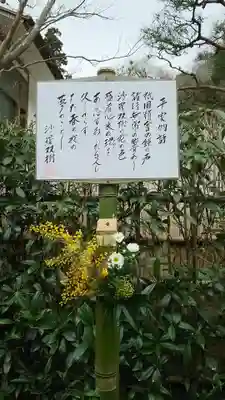 平家物語
祇園精舎の鐘の声
諸行無常の響きあり
沙羅双樹の花の色
盛者必衰の理を
あらはす おごれる人も
久しからず
ただ春の夜の
夢のごとし
沙羅双樹